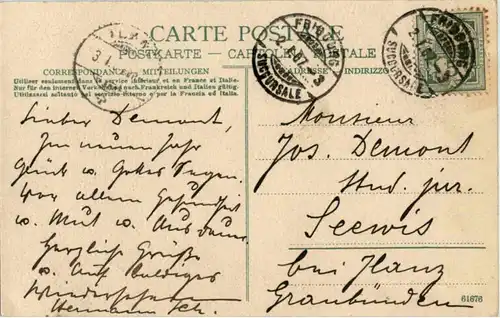 CARTE POSTALE
POSTKARTE — CARTOLINA POSTALE
CORRESPONDANCE — MITTEILUNGEN
ADRESSE — INDIRIZZO
Utilizer seulement dans le service intérieur et en France et Italie.
Nur für den Internet Verkehr und nach Frankreich und Italien gültig.
Utilizzarsi soltanto nel servizio interno e per la Francia ed Italia.
FRIBOURG
SUCCURSALE
FRIBOURG
SUCCURSALE
ILANZ
Lieber Demont,
Zum neuen Jahr
Glück u. Gottes Segen.
Vor allem Gesundheit
u. Mut u. Ausdauer.
Herzliche Grüsse
u. Auf baldiges
Wiedersehen
Hermann
Monsieur
Jos. Demont
stud. jur.
Seewis
bei Ilanz
Graubünden
61676